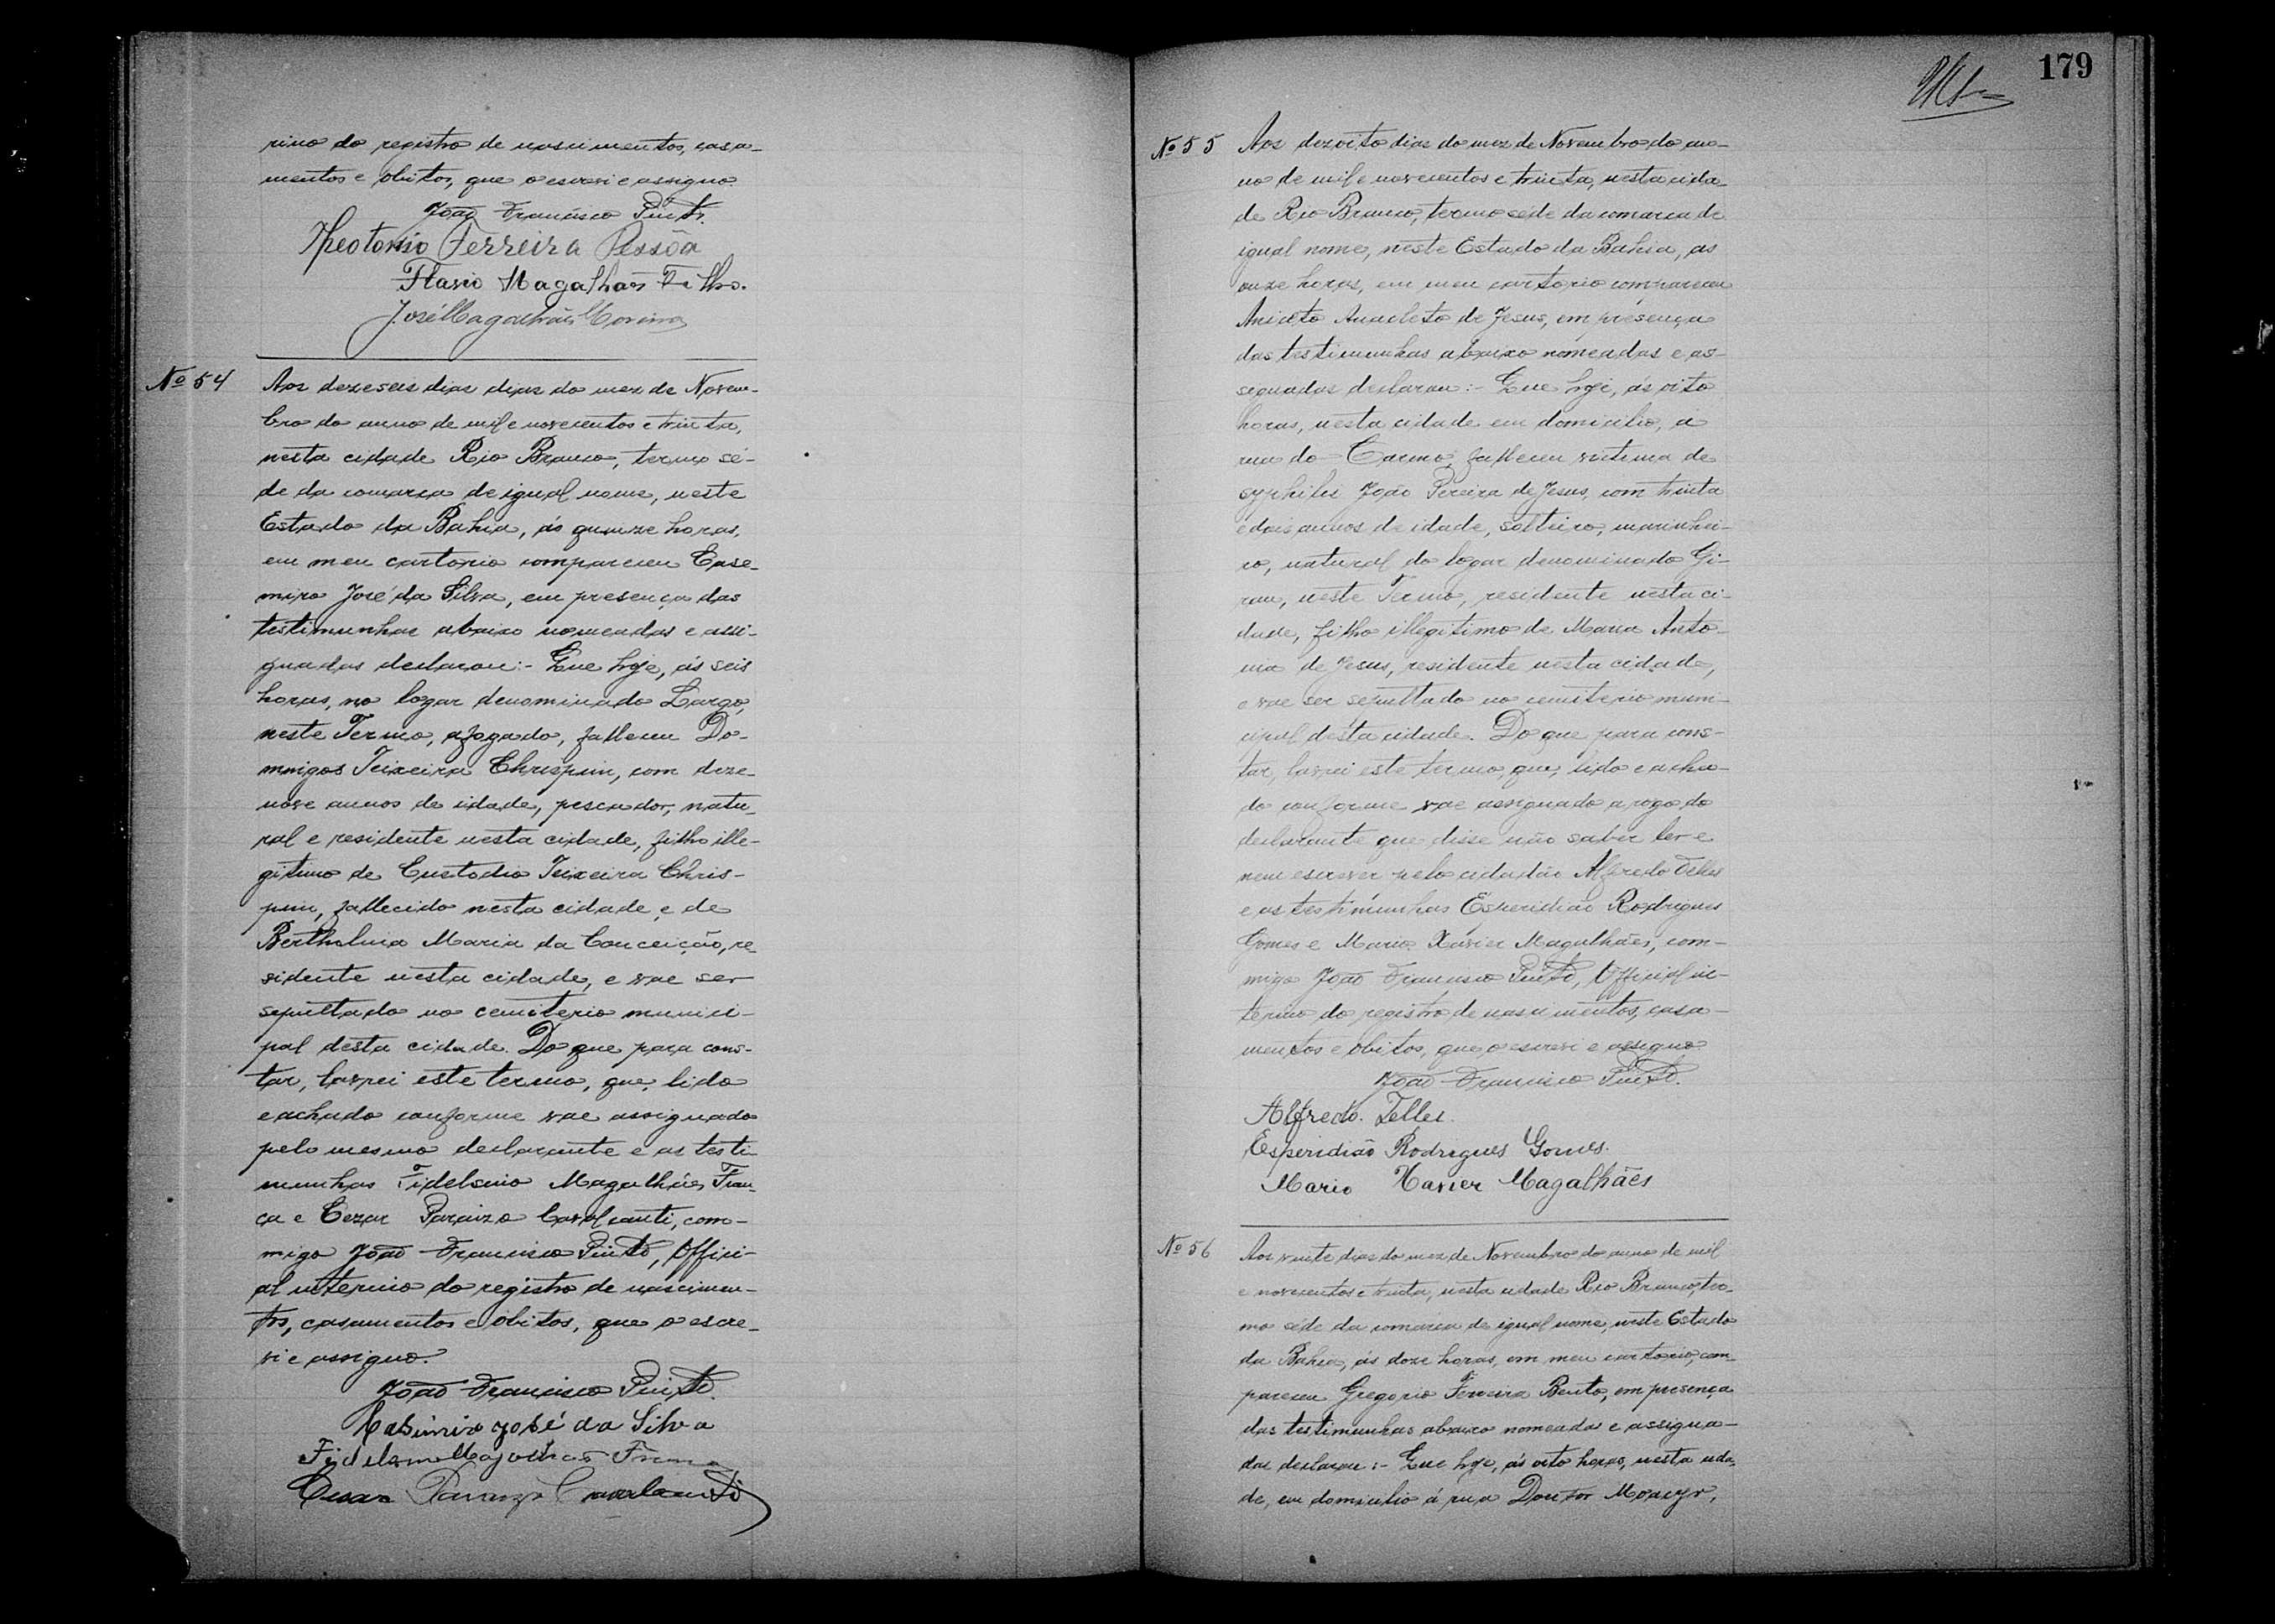 rino do registro de nascimentos, casa-
mentos e obitos, que o escrevi e assigno.
João Francisco Pinto.
Theotonio Ferreira Pessôa
Flavio Magalhães Filho.
José Magalhães
Nº 54 Aos dezeseis dias dias do mez de Novem-
bro do anno de mil e novecentos e trinta,
nesta cidade Rio Branco, termo sé-
de da comarca de igual nome, neste
Estado da Bahia, ás quinze horas,
em meu cartorio compareceu Case-
miro José da Silva, em presença das
testimunhas abaixo nomeadas e assi-
gnadas declarou:- Que hoje, ás seis
horas, no logar denominado Largo,
neste Termo, afogado, falleceu Do-
mingos Teixeira Chrispim, com deze-
nove annos de idade, pescador, natu-
ral e residente nesta cidade, filho ille-
gitimo de Custodio Teixeira Chris-
pim, fallecido nesta cidade, e de
Bertholina Maria da Conceição, re-
sidente nesta cidade, e vae ser
sepultado no cemiterio munici-
pal desta cidade. Do que para cons-
tar, lavrei este termo, que, lido
e achado conforme vae assignado
pelo mesmo declarante e as testi-
munhas Fidelsino Magalhães Fran-
ça e Cezar Paraizo Cavalcanti, com-
migo João Francisco Pinto, Offici-
al interino do registro de nascimen-
tos, casamentos e obitos, que o escre-
vi e assigno.
João Francisco Pinto.
Casimiro José da Silva
Fidelsino Magalhães França
Cesar Paraizo Cavalcanti
179
Nº 55 Aos dezoito dias do mez de Novembro do an-
no de mil e novecentos e trinta, nesta cida-
de Rio Branco, termo sede da comarca de
igual nome, neste Estado da Bahia, as
onze horas, em meu cartorio compareceu
Aniceto Anacleto de Jesus, em presença
das testimunhas abaixo nomeadas e as-
segnadas declarou:- Que hoje, ás oito
horas, nesta cidade em domicilio, á
rua do Carmo, falleceu victima de
syphiles João Pereira de Jesus, com trinta
e dois annos de idade, solteiro, marinhei-
ro, natural do logar denominado Gi-
rau, neste Termo, residente nesta ci-
dade, filho illegitimo de Maria Anto-
nia de Jesus, residente nesta cidade,
e vae ser sepultado no cemiterio muni-
cipal désta cidade. Do que para cons-
tar, lavrei este termo, que, lido e acha-
do conforme vae assignado a rogo do
declarante que disse não saber ler e
nem escrever pelo cidadão Alfredo Telles
e as testimunhas Esperidião Rodrigues
Gomes e Mario Xavier Magalhães, com-
migo João Francisco Pinto, Official in-
terino do registro de nascimentos, casa-
mentos e obitos, que o escrevi e assigno.
João Francisco Pinto.
Alfredo. Telles.
Esperidião Rodrigues Gomes.
Mario Xavier Magalhães
Nº 56 Aos vinte dias do mez de Novembro do anno de mil
e novecentos e trinta, nesta cidade Rio Branco, ter-
mo séde da comarca de igual nome, neste Estado
da Bahia, ás doze horas, em meu cartorio, com-
pareceu Gregorio Ferreira Bento, em presença
das testimunhas abaixo nomeadas e assigna-
das declarou:- Que hoje, ás oito horas, nesta cida-
de, em domicilio á rua Doutor Moacyr,